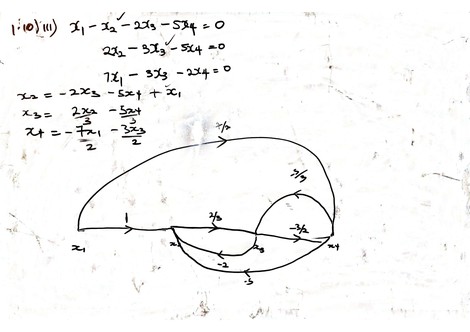 1.10) iii) x₁ - x₂ - 2x₃ - 5x₄ = 0
2x₂ - 3x₃ - 5x₄ = 0
7x₁ - 3x₃ - 2x₄ = 0
x₂ = -2x₃ - 5x₄ + x₁
x₃ = 2x₂/3 - 5x₄/3
x₄ = -7x₁/2 - 3x₃/2
1
2/3
-3/2
x₁
x₃
x₄
-2
-5